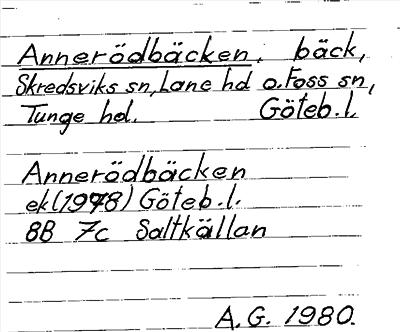 Annerödbäcken, bäck,
Skredsviks sn, Lane hd o. Foss sn,
Tunge hd. Göteb. l.
Annerödbäcken
ek (1978) Göteb. l.
8B 7c Saltkällan
A. G. 1980.